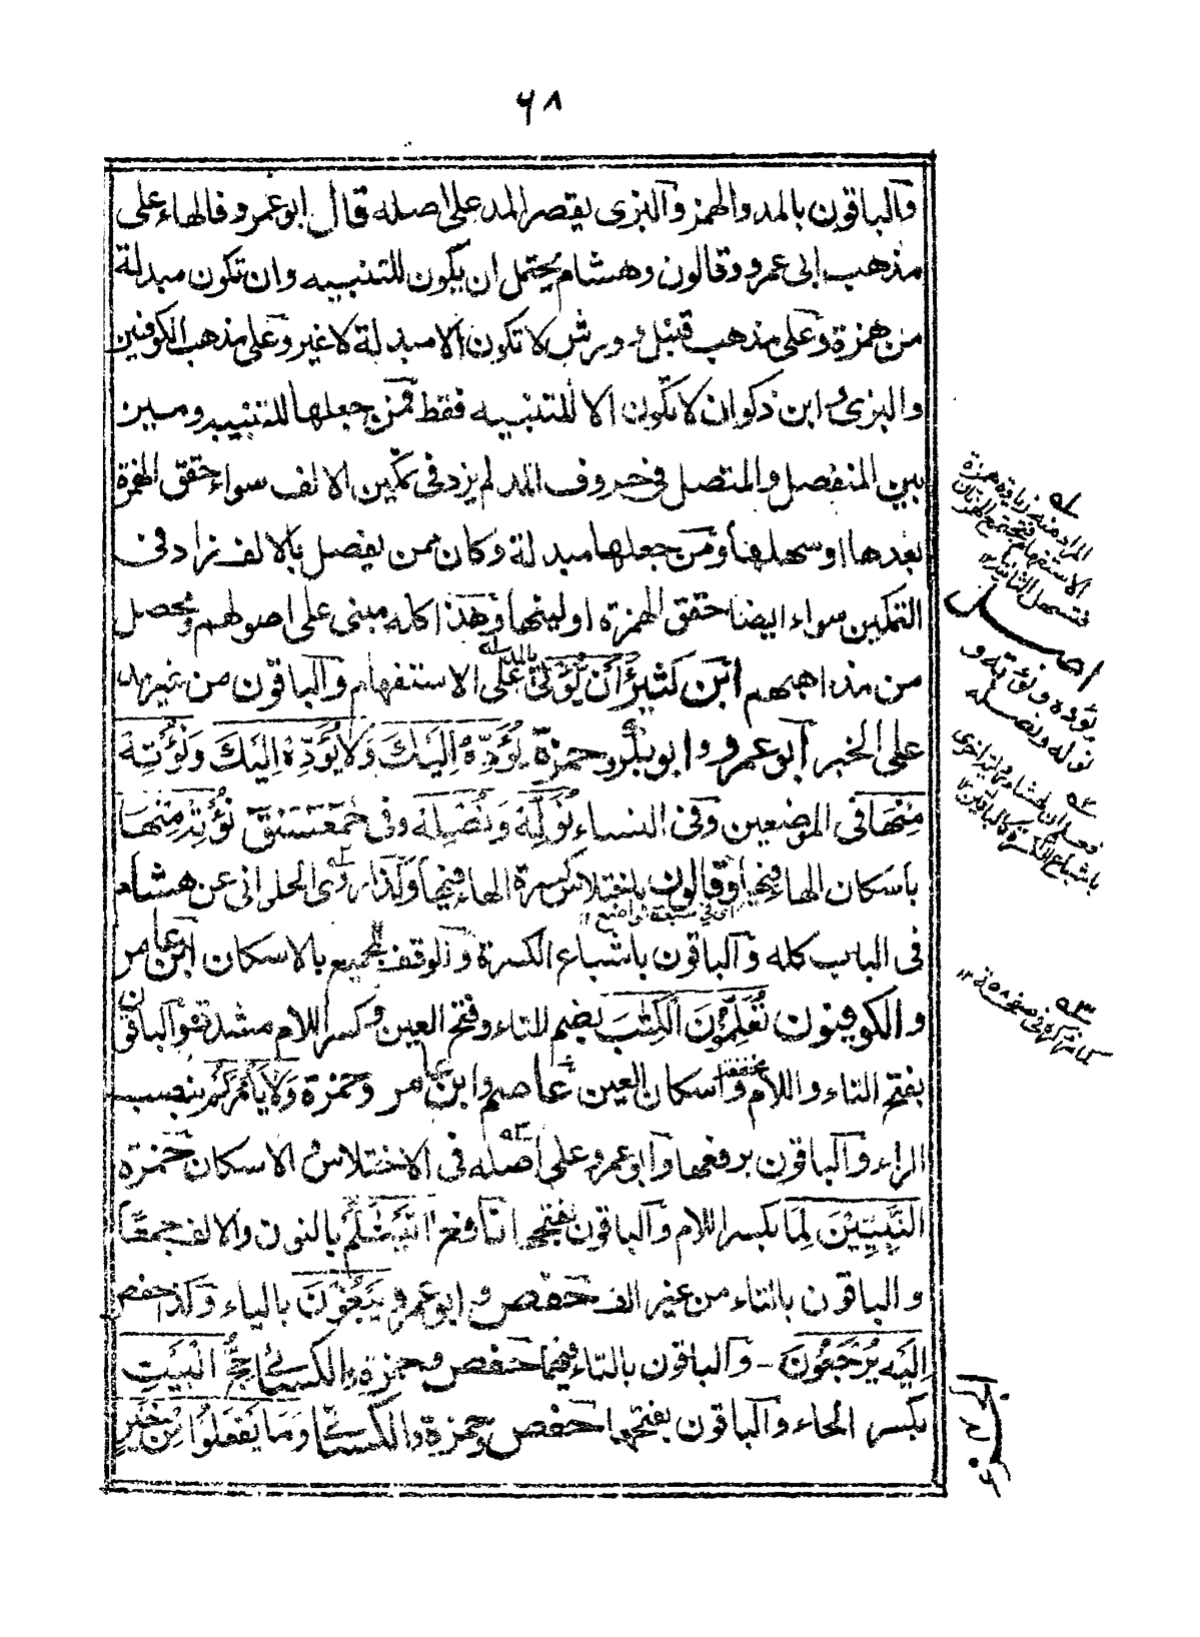 ٦٨
والباقون بالمد والهمز والبزى يقصر المد على اصله قال ابو عمرو فالهاء على
مذهب ابى عمرو وقالون وهشام يحتمل ان يكون للتنبيه وان تكون مبدلة
من همزة وعلى مذهب قنبل وورش لا تكون الا مبدلة لا غير وعلى مذهب الكوفيين
والبزى وابن ذكوان لا تكون الا للتنبيه فقط فمن جعلها للتنبيه وميز
بين المنفصل والمتصل فى حروف المد لم يزد فى تمكين الالف سواء حقق الهمزة
بعدها او سهلها ومن جعلها مبدلة وكان ممن يفصل بالالف زاد فى
التمكين سواء ايضا حقق الهمزة او لينها وهذا كله مبنى على اصولهم ومحصل
من مذاهبهم ابن كثير أَنْ يُّؤْتٰى على الاستفهام والباقون من غير مد
بالمد
على الخبر ابو عمرو وابو بكر وحمزة يُؤَدِّهْ اِلَيْكَ وَلَا يُؤَدِّهْ اِلَيْكَ وَنُؤْتِهْ
مِنْهَا فى الموضعين وفى النساء نُوَلِّهْ وَنُصْلِهْ وفى حٰمٓعٓسٓقٓ نُؤْتِهْ مِنْهَا
باسكان الهاء فيها وقالون باختلاس كسرة الهاء فيها وكذا روى الحلوانى عن هشام
فى الباب كله والباقون باشباع الكسرة والوقف للجميع بالاسكان ابن عامر
والكوفيون تُعَلِّمُوْنَ الْكِتٰبَ بضم التاء وفتح العين وكسر اللام مشددة والباقون
بفتح التاء واللام مخففة واسكان العين عاصم وابن عامر وحمزة وَلَا يَأْمُرَكُمْ بنصب
الراء والباقون برفعها وابو عمرو على اصله فى الاختلاس والاسكان حمزة
النَّبِيِّيْنَ لِمَا بكسر اللام والباقون بفتحها نافع اٰتَيْنٰكُمْ بالنون والالف جمعًا
والباقون بالتاء من غير الف حفص وابو عمرو يَبْغُوْنَ بالياء وكذا حفص
اِلَيْهِ يُرْجَعُوْنَ - والباقون بالتاء فيهما حفص وحمزة والكسائى حِجُّ الْبَيْتِ
بكسر الحاء والباقون بفتحها حفص وحمزة والكسائى وَمَا يَفْعَلُوْا مِنْ خَيْرٍ
يؤده ونؤته و
نوله ونصله